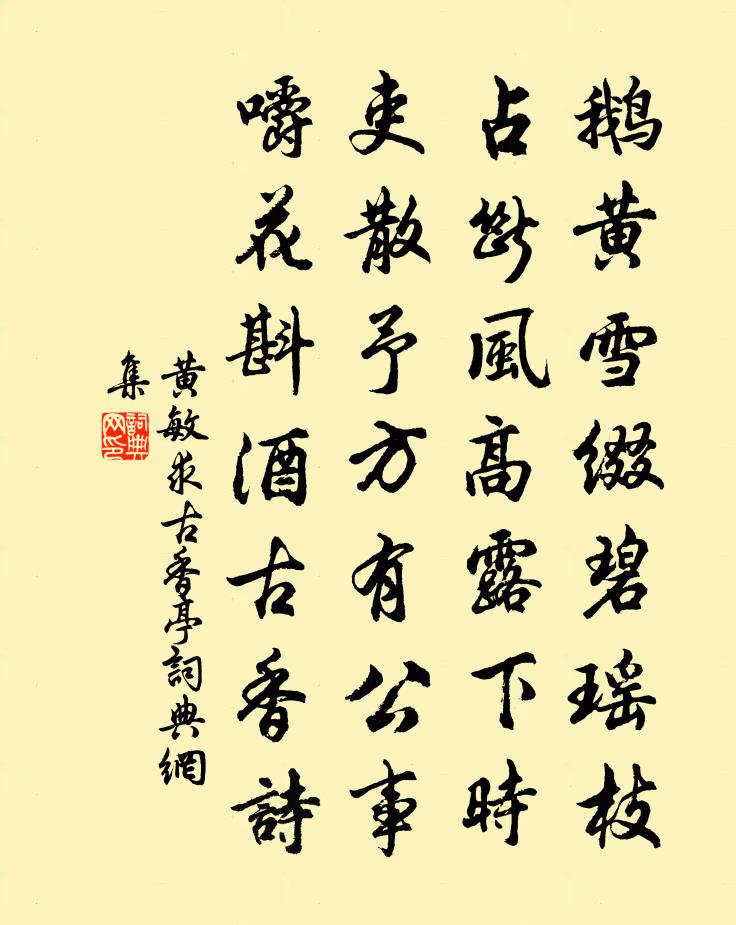 鵝黃雪綴碧瑶枝
占斷風高露下時
吏散予方有公事
嚼花斟酒古香詩
黃敏求古香亭詞典網
集
詞典
网印